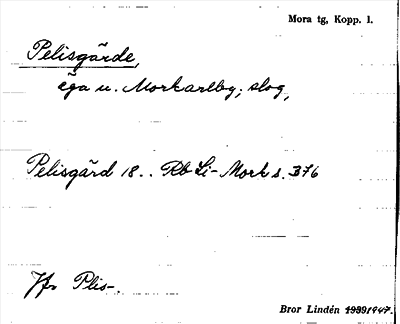 Mora tg, Kopp. l.
Pelisgårde,
äga u. Morkarlby; slog,
Pelisgård 18.. Rb Li-Mork s. 376
Jfr Plis-.
Bror Lindén 1939/1947.